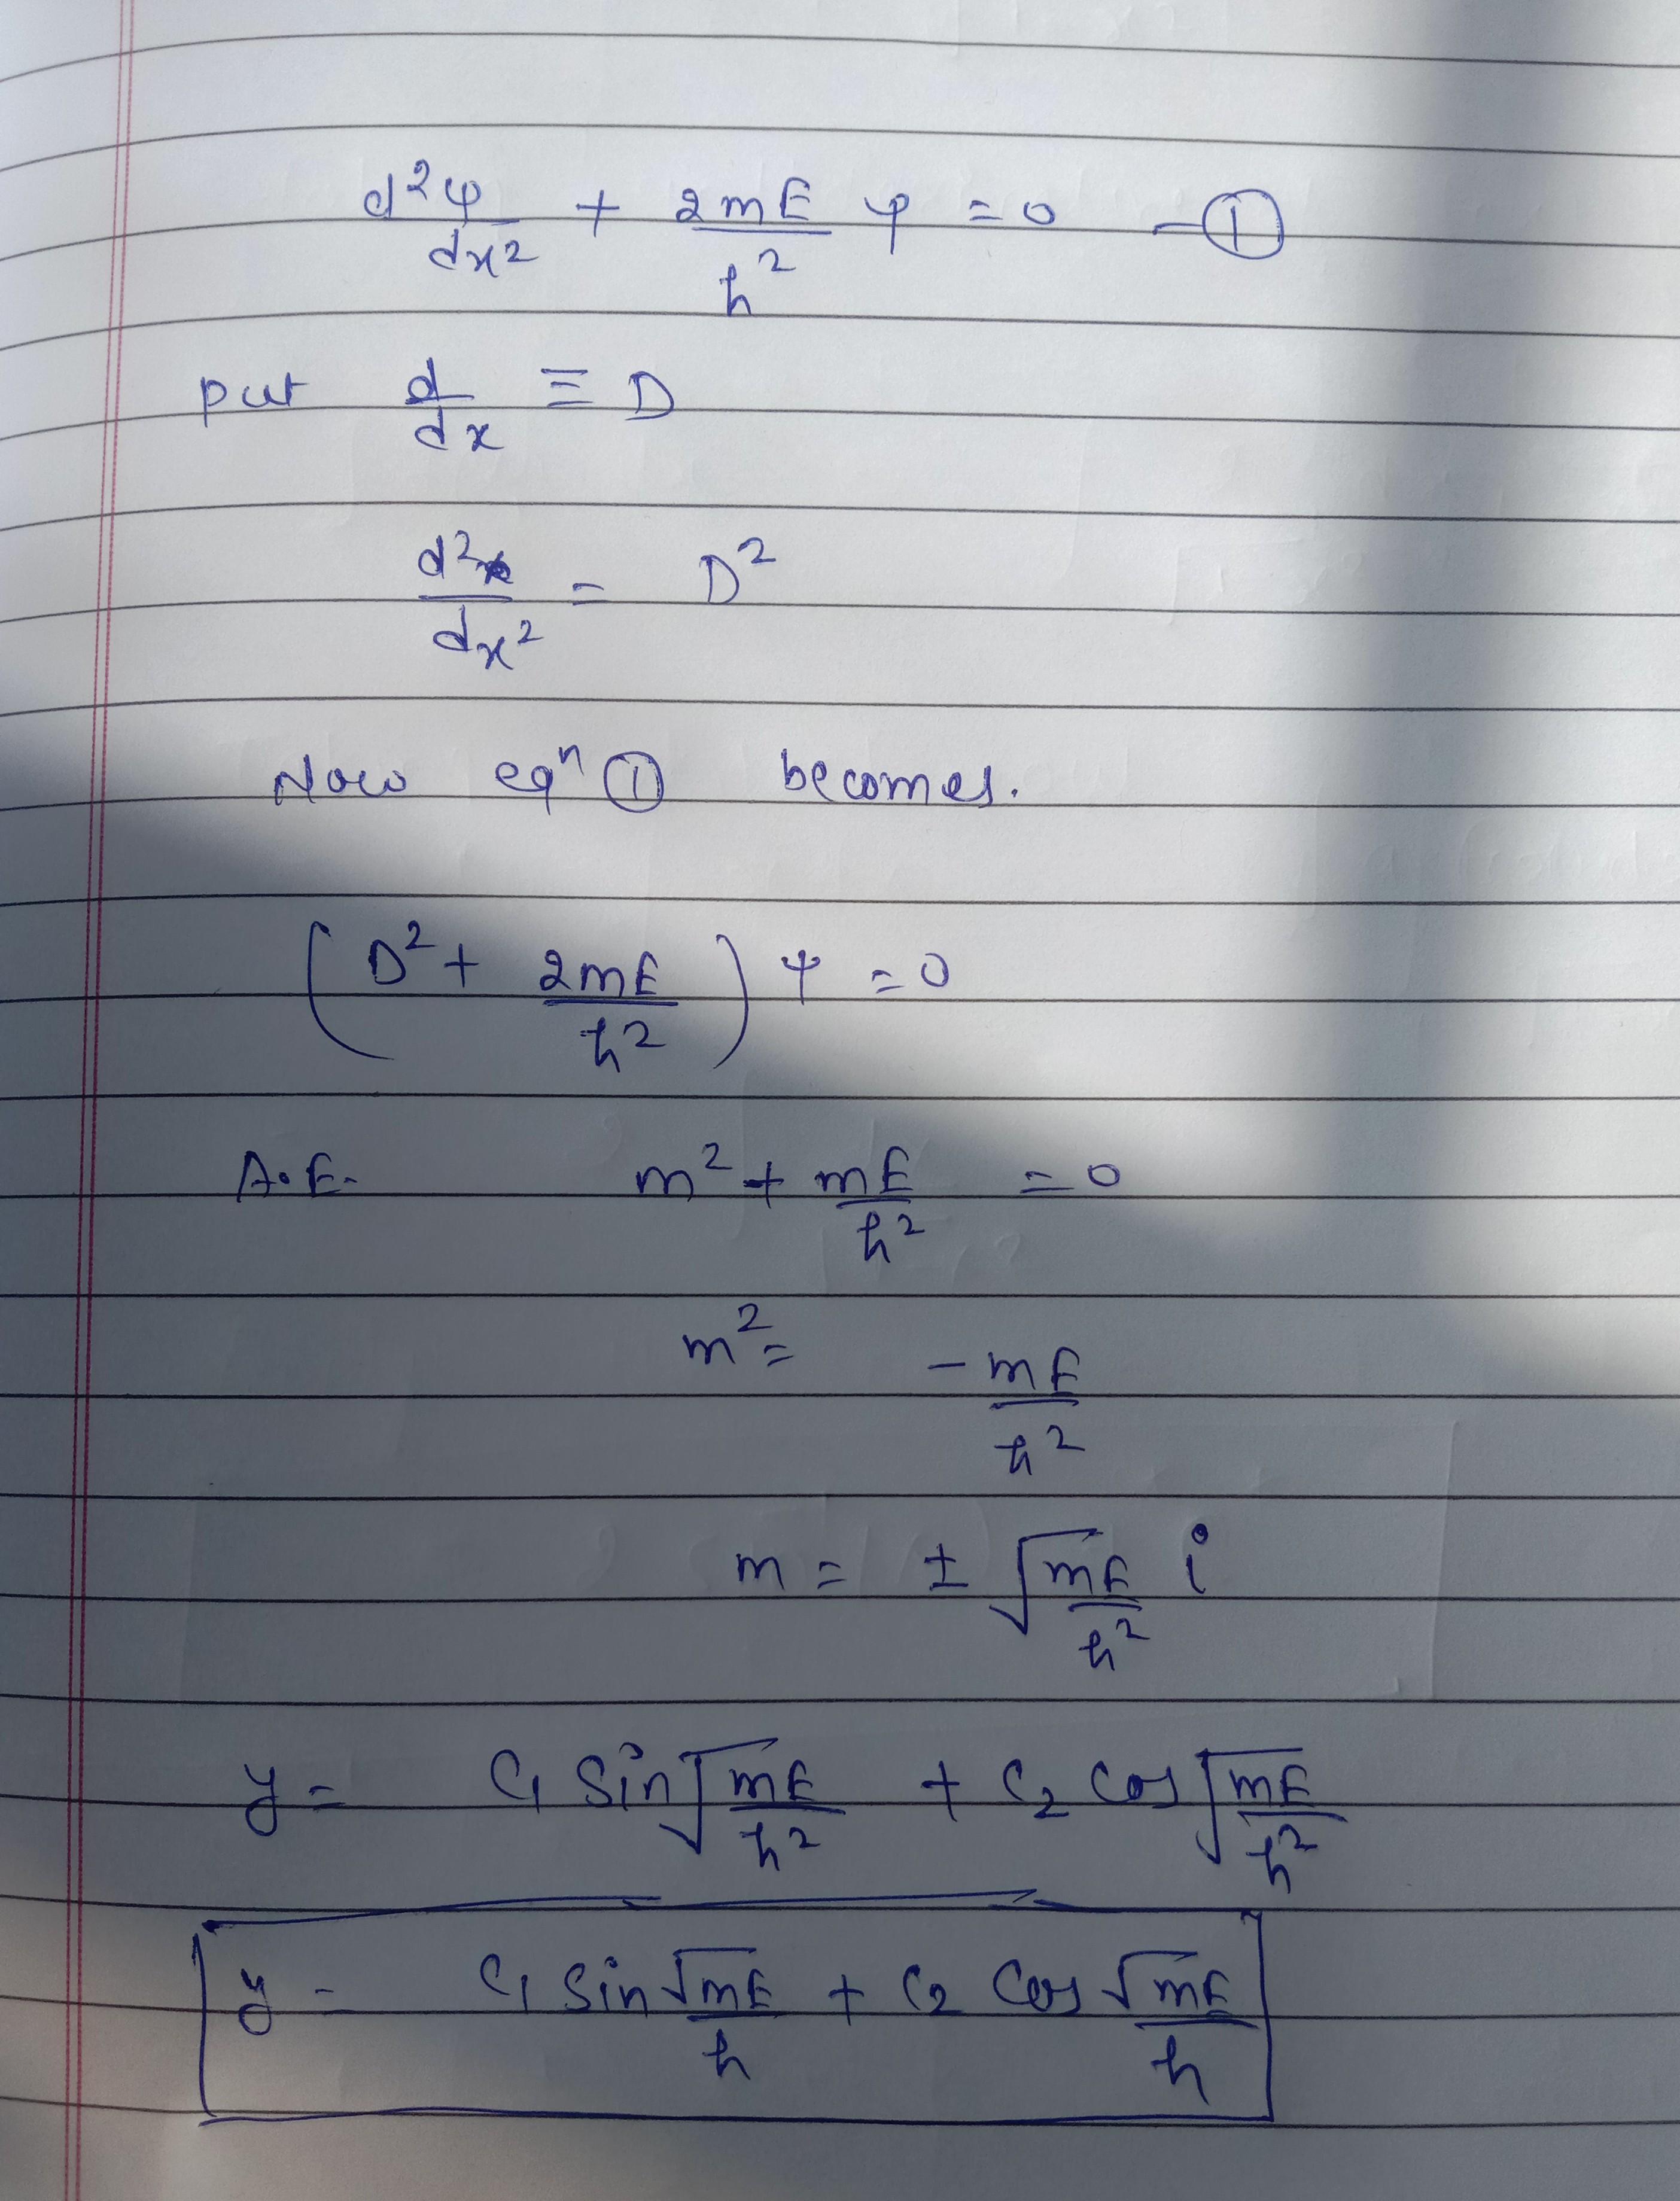 d²ψ/dx² + 2mE/ħ² ψ = 0 —①
put d/dx ≡ D
d²/dx² = D²
Now eqⁿ ① becomes.
(D² + 2mE/ħ²) ψ = 0
A.E. m² + mE/ħ² = 0
m² = -mE/ħ²
m = ± √(mE/ħ²) i
y = C₁ Sin √(mE/ħ²) + C₂ Cos √(mE/ħ²)
y = C₁ Sin √mE/ħ + C₂ Cos √mE/ħ